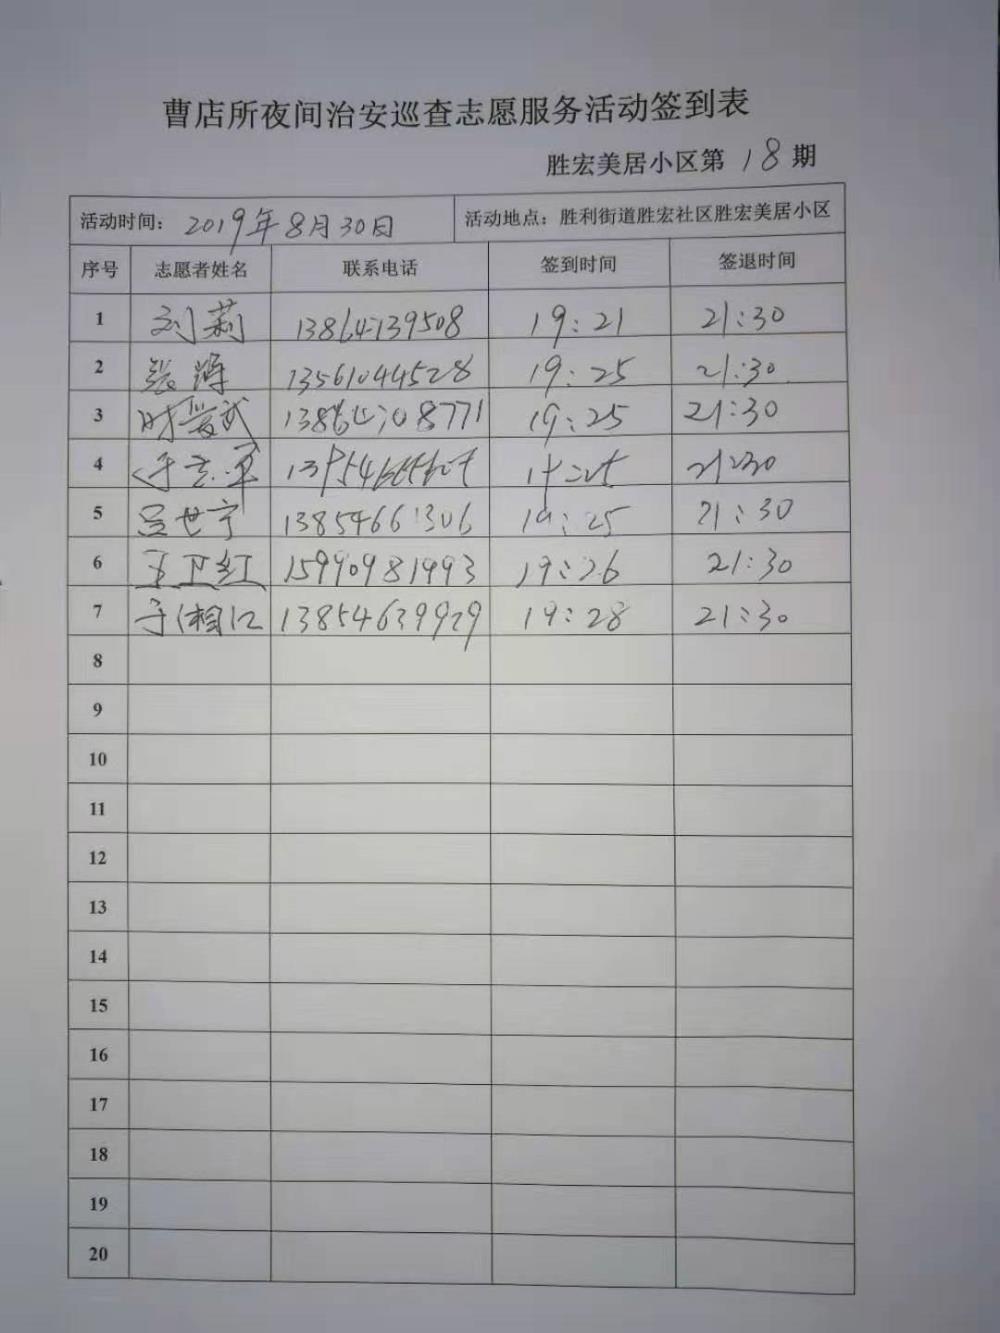 曹店所夜间治安巡查志愿服务活动签到表
胜宏美居小区第 18 期
活动时间：2019年8月30日 活动地点：胜利街道胜宏社区胜宏美居小区
序号 志愿者姓名 联系电话 签到时间 签退时间
1 刘莉 13864739508 19:21 21:30
2 13561044528 19:25 21:30
3 时爱武 19:25 21:30
4 21:30
5 吕世宁 13854661306 19:25 21:30
6 王卫红 15990981993 19:26 21:30
7 于湘江 13854639929 19:28 21:30
8
9
10
11
12
13
14
15
16
17
18
19
20